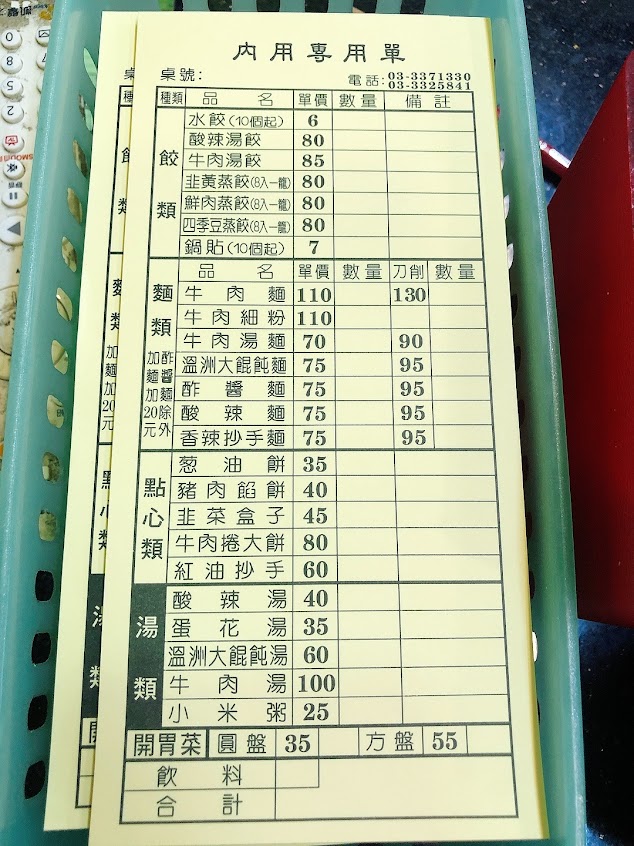 內用專用單
桌號：
電話：03-3371330
03-3325841
種類 品名 單價 數量 備註
餃類
水餃(10個起) 6
酸辣湯餃 80
牛肉湯餃 85
韭黃蒸餃(8入一籠) 80
鮮肉蒸餃(8入一籠) 80
四季豆蒸餃(8入一籠) 80
鍋貼(10個起) 7
麵類
酢醬麵除外
加麵加20元
品名 單價 數量 刀削 數量
牛肉麵 110 130
牛肉細粉 110
牛肉湯麵 70 90
溫洲大餛飩麵 75 95
酢醬麵 75 95
酸辣麵 75 95
香辣抄手麵 75 95
點心類
葱油餅 35
豬肉餡餅 40
韭菜盒子 45
牛肉捲大餅 80
紅油抄手 60
湯類
酸辣湯 40
蛋花湯 35
溫洲大餛飩湯 60
牛肉湯 100
小米粥 25
開胃菜 圓盤 35 方盤 55
飲料
合計